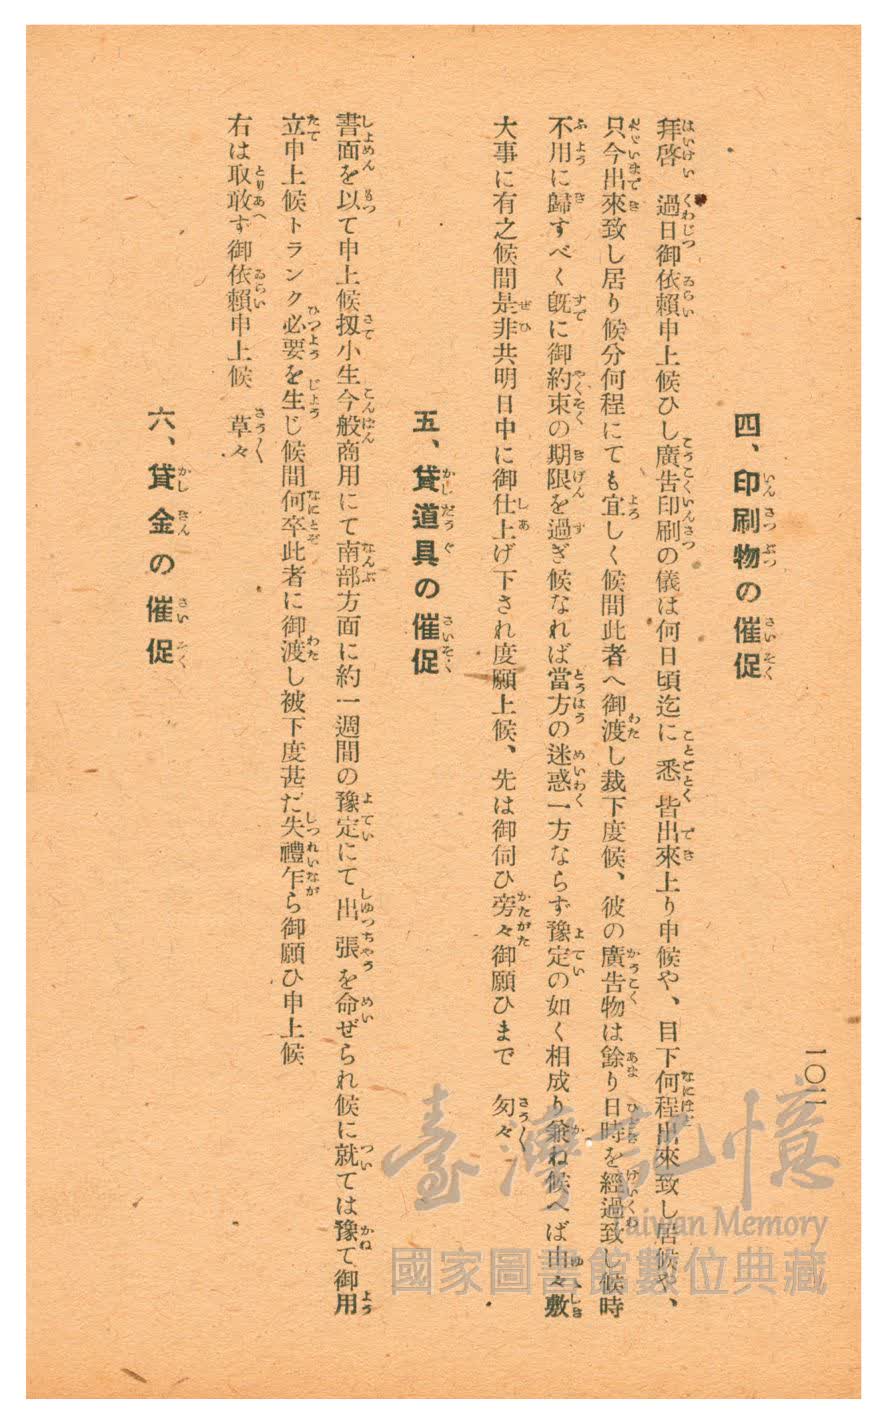 一〇二
四、印刷物の催促
拜啓 過日御依賴申上候ひし廣告印刷の儀は何日頃迄に悉皆出來上り申候や、目下何程出來致し居候や、
只今出來致し居り候分何程にても宜しく候間此者へ御渡し裁下度候、彼の廣告物は餘り日時を經過致し候時
不用に歸すべく既に御約束の期限を過ぎ候なれば當方の迷惑一方ならず豫定の如く相成り兼ね候へば由々敷
大事に有之候間是非共明日中に御仕上げ下され度願上候、先は御伺ひ旁々御願ひまで 匆々
五、貸道具の催促
書面を以て申上候扨小生今般商用にて南部方面に約一週間の豫定にて出張を命ぜられ候に就ては豫て御用
立申上候トランク必要を生じ候間何卒此者に御渡し被下度甚だ失禮乍ら御願ひ申上候
右は取敢ず御依賴申上候 草々
六、貸金の催促
臺灣記憶
Taiwan Memory
國家圖書館數位典藏